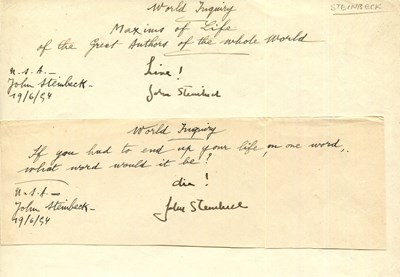 World Inquiry
STEINBECK
Maxims of Life
of the Great Authors of the whole World
U.S.A.—
John Steinbeck—
19/6/54
Live!
John Steinbeck
World Inquiry
If you had to end up your life, on one word,
what word would it be?
U.S.A.—
John Steinbeck—
19/6/54
die!
John Steinbeck